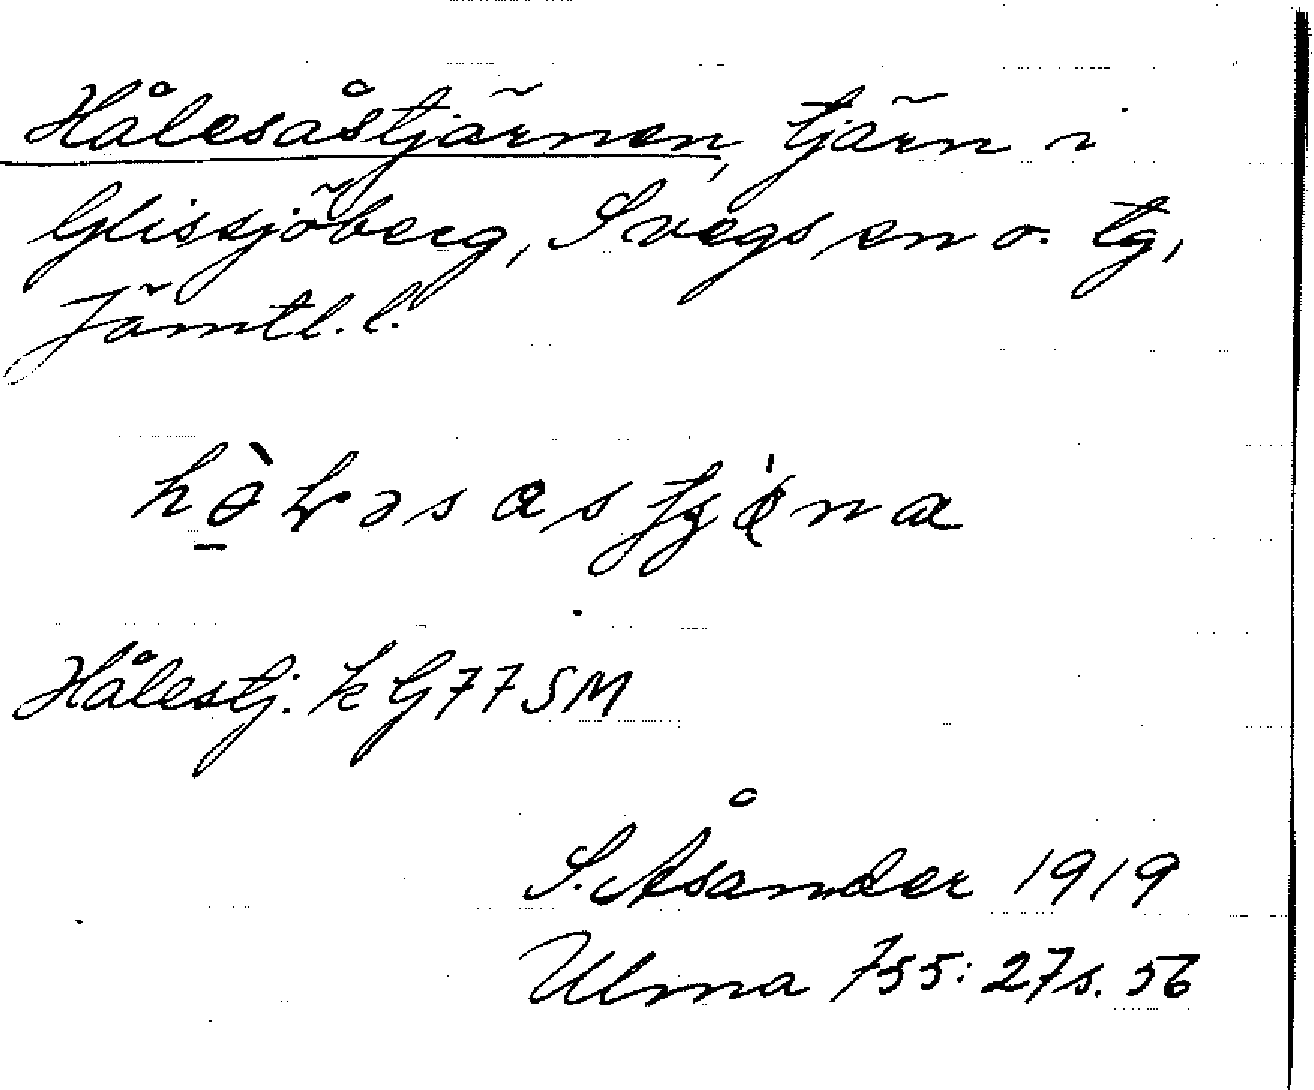 Hålesåstjärnen, tjärn i
Glissjöberg, Svegs sn o. tg,
Jämtl. l.
Hålestj. k G77SM
S. Åsander 1919
Ulma 755: 27 s. 56